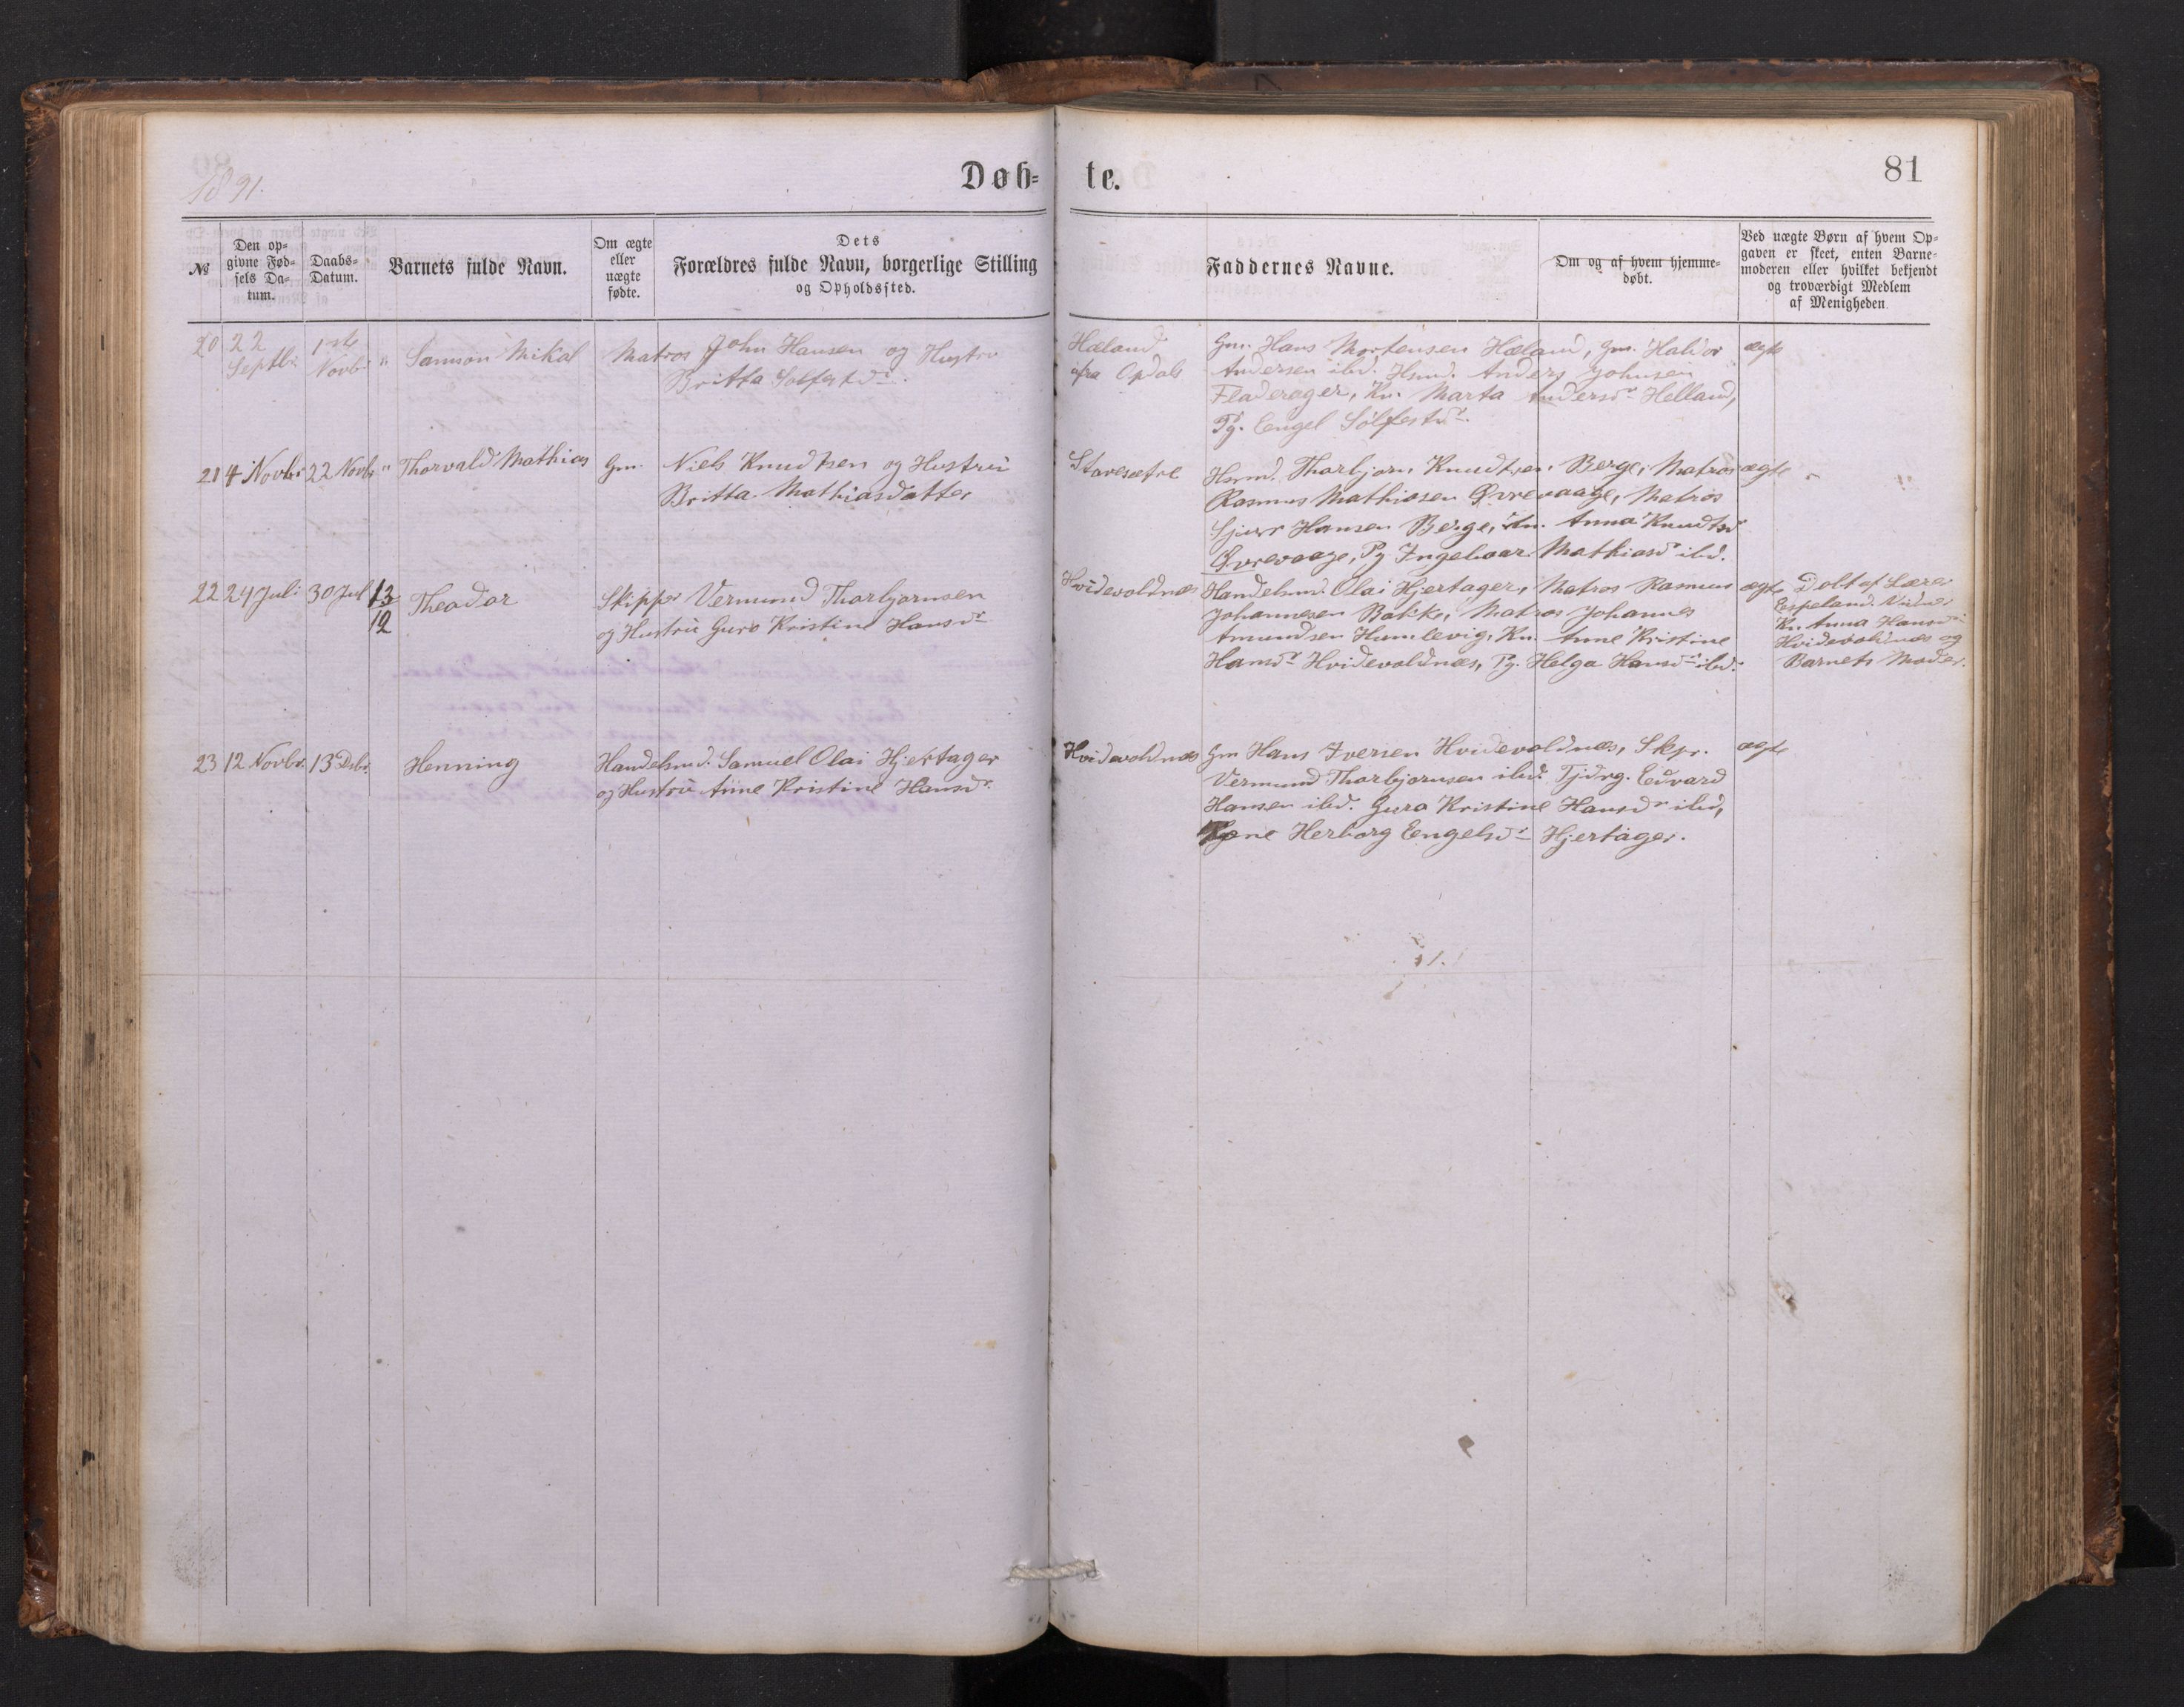 1891.
Døb=
te.
81
№
Den op=
givne Fød=
sels Da=
tum.
Daabs=
Datum.
Barnets fulde Navn.
Om ægte
eller
uægte
fødte.
Dets
Forældres fulde Navn, borgerlige Stilling
og Opholdssted.
Faddernes Navne.
Om og af hvem hjemme=
døbt.
Ved uægte Børn af hvem Op=
gaven er skeet, enten Barne=
moderen eller hvilket bekjendt
og troværdigt Medlem
af Menigheden.
20 22 Septbr. 1ste Novbr. " Samson Mikal Matros John Hansen og Hustru
Britta Solfestdr.
Hæland
fra Opdal
Gm. Hans Mortensen Hæland, Gm. Haldor ægte
Andersen ibd. Hsmd. Anders Johnsen
Fladerager, Kn. Marta Andersdr. Helland,
Pg. Engel Sølfestdr.
21 4 Novbr. 22 Novbr. " Thorvald Mathias Gm. Niels Knudtsen og Hustru
Britta Mathiasdatter
Stavesætre
Hsmd. Thorbjørn Knudtsen Berge, Matros ægte
Rasmus Mathiasen Øvrevaage, Matros
Sjurr Hansen Berge, Kn. Anna Knudtsd
Øvrevaage, Pg Ingeboar Mathiasdr ibd.
22 24 Juli 30 Jul 13/12 Theodor Skipper Vermund Thorbjørnsen
og Hustru Guro Kristine Hansdr
Hvidevoldnæs
Handelsmd. Olai Hjertager, Matros Rasmus ægte
Johannesen Bakke, Matros Johannes
Amundsen Humlevig, Kn. Anne Kristine
Hansdr Hvidevoldnæs, Pg. Helga Hansdr ibd.
Døbt af Lærer
Espeland. Vidner
Kn. Anna Hansdr
Hvidevoldnæs og
Barnets Moder.
23 12 Novbr. 13 Dcbr. Henning Handelsmd. Samuel Olai Hjertager
og Hustru Anne Kristine Hansdr.
Hvidevoldnæs
Gm Hans Iversen Hvidevoldnæs, Skpr. ægte
Vermund Thorbjørnsen ibd. Tjdrg. Edvard
Hansen ibd. Gura Kristine Hansdr ibd,
Herborg Engelsdr Hjertager.